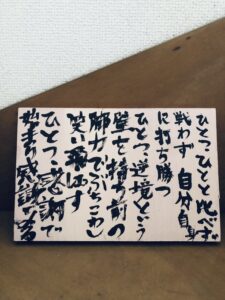 ひとつ ひとと比べず
戦わず 自分自身
に打ち勝つ
ひとつ 逆境という
壁を 持ち前の
脚力でぶちこわし
笑い飛ばす
ひとつ
感謝する